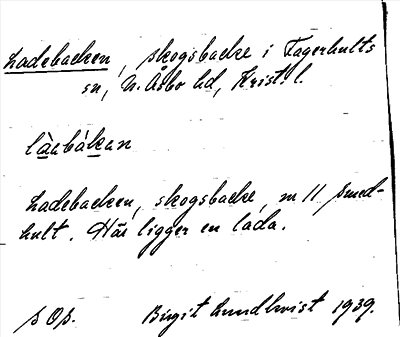 Ladebacken, skogsbacke i Fagerhults
sn, N. Åsbo hd, Krist. l.
làabákan
Ladebacken, skogsbacke, m 11 Smed-
hult. Här ligger en lada.
Birgit Lundkvist 1939.